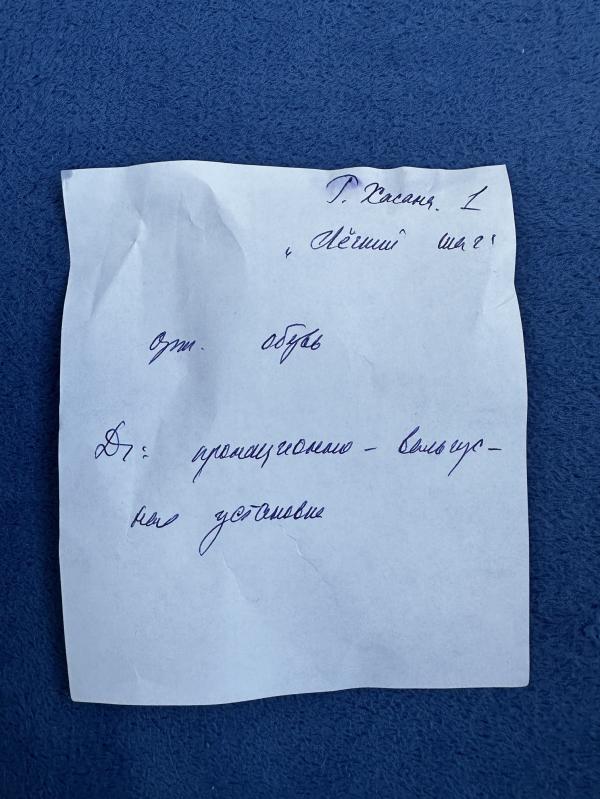 Г. Хасана. 1
„Лёгкий шаг"
орт. обувь
Ds: пронационно - вальгус-
ная установка